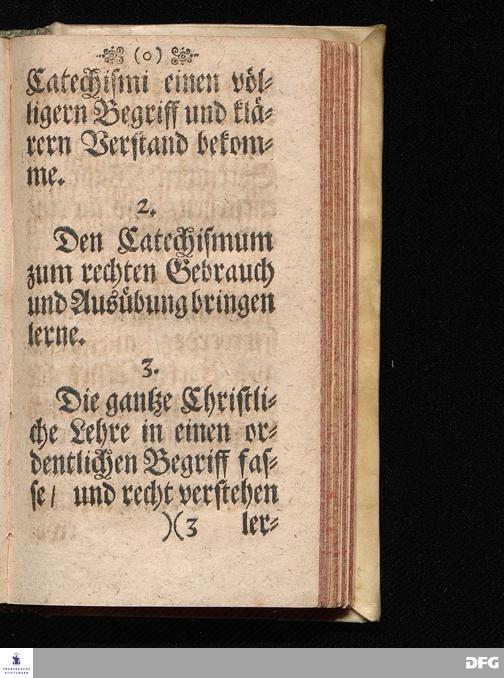 (0)
Catechismi einen völ⸗
ligern Begriff und klä⸗
rern Verstand bekom⸗
me.
2.
Den Catechismum
zum rechten Gebrauch
und Ausübung bringen
lerne.
3.
Die gantze Christli⸗
che Lehre in einen or⸗
dentlichen Begriff fas⸗
se / und recht verstehen
)(3 ler⸗
FRANCKESCHE
STIFTUNGEN
DFG